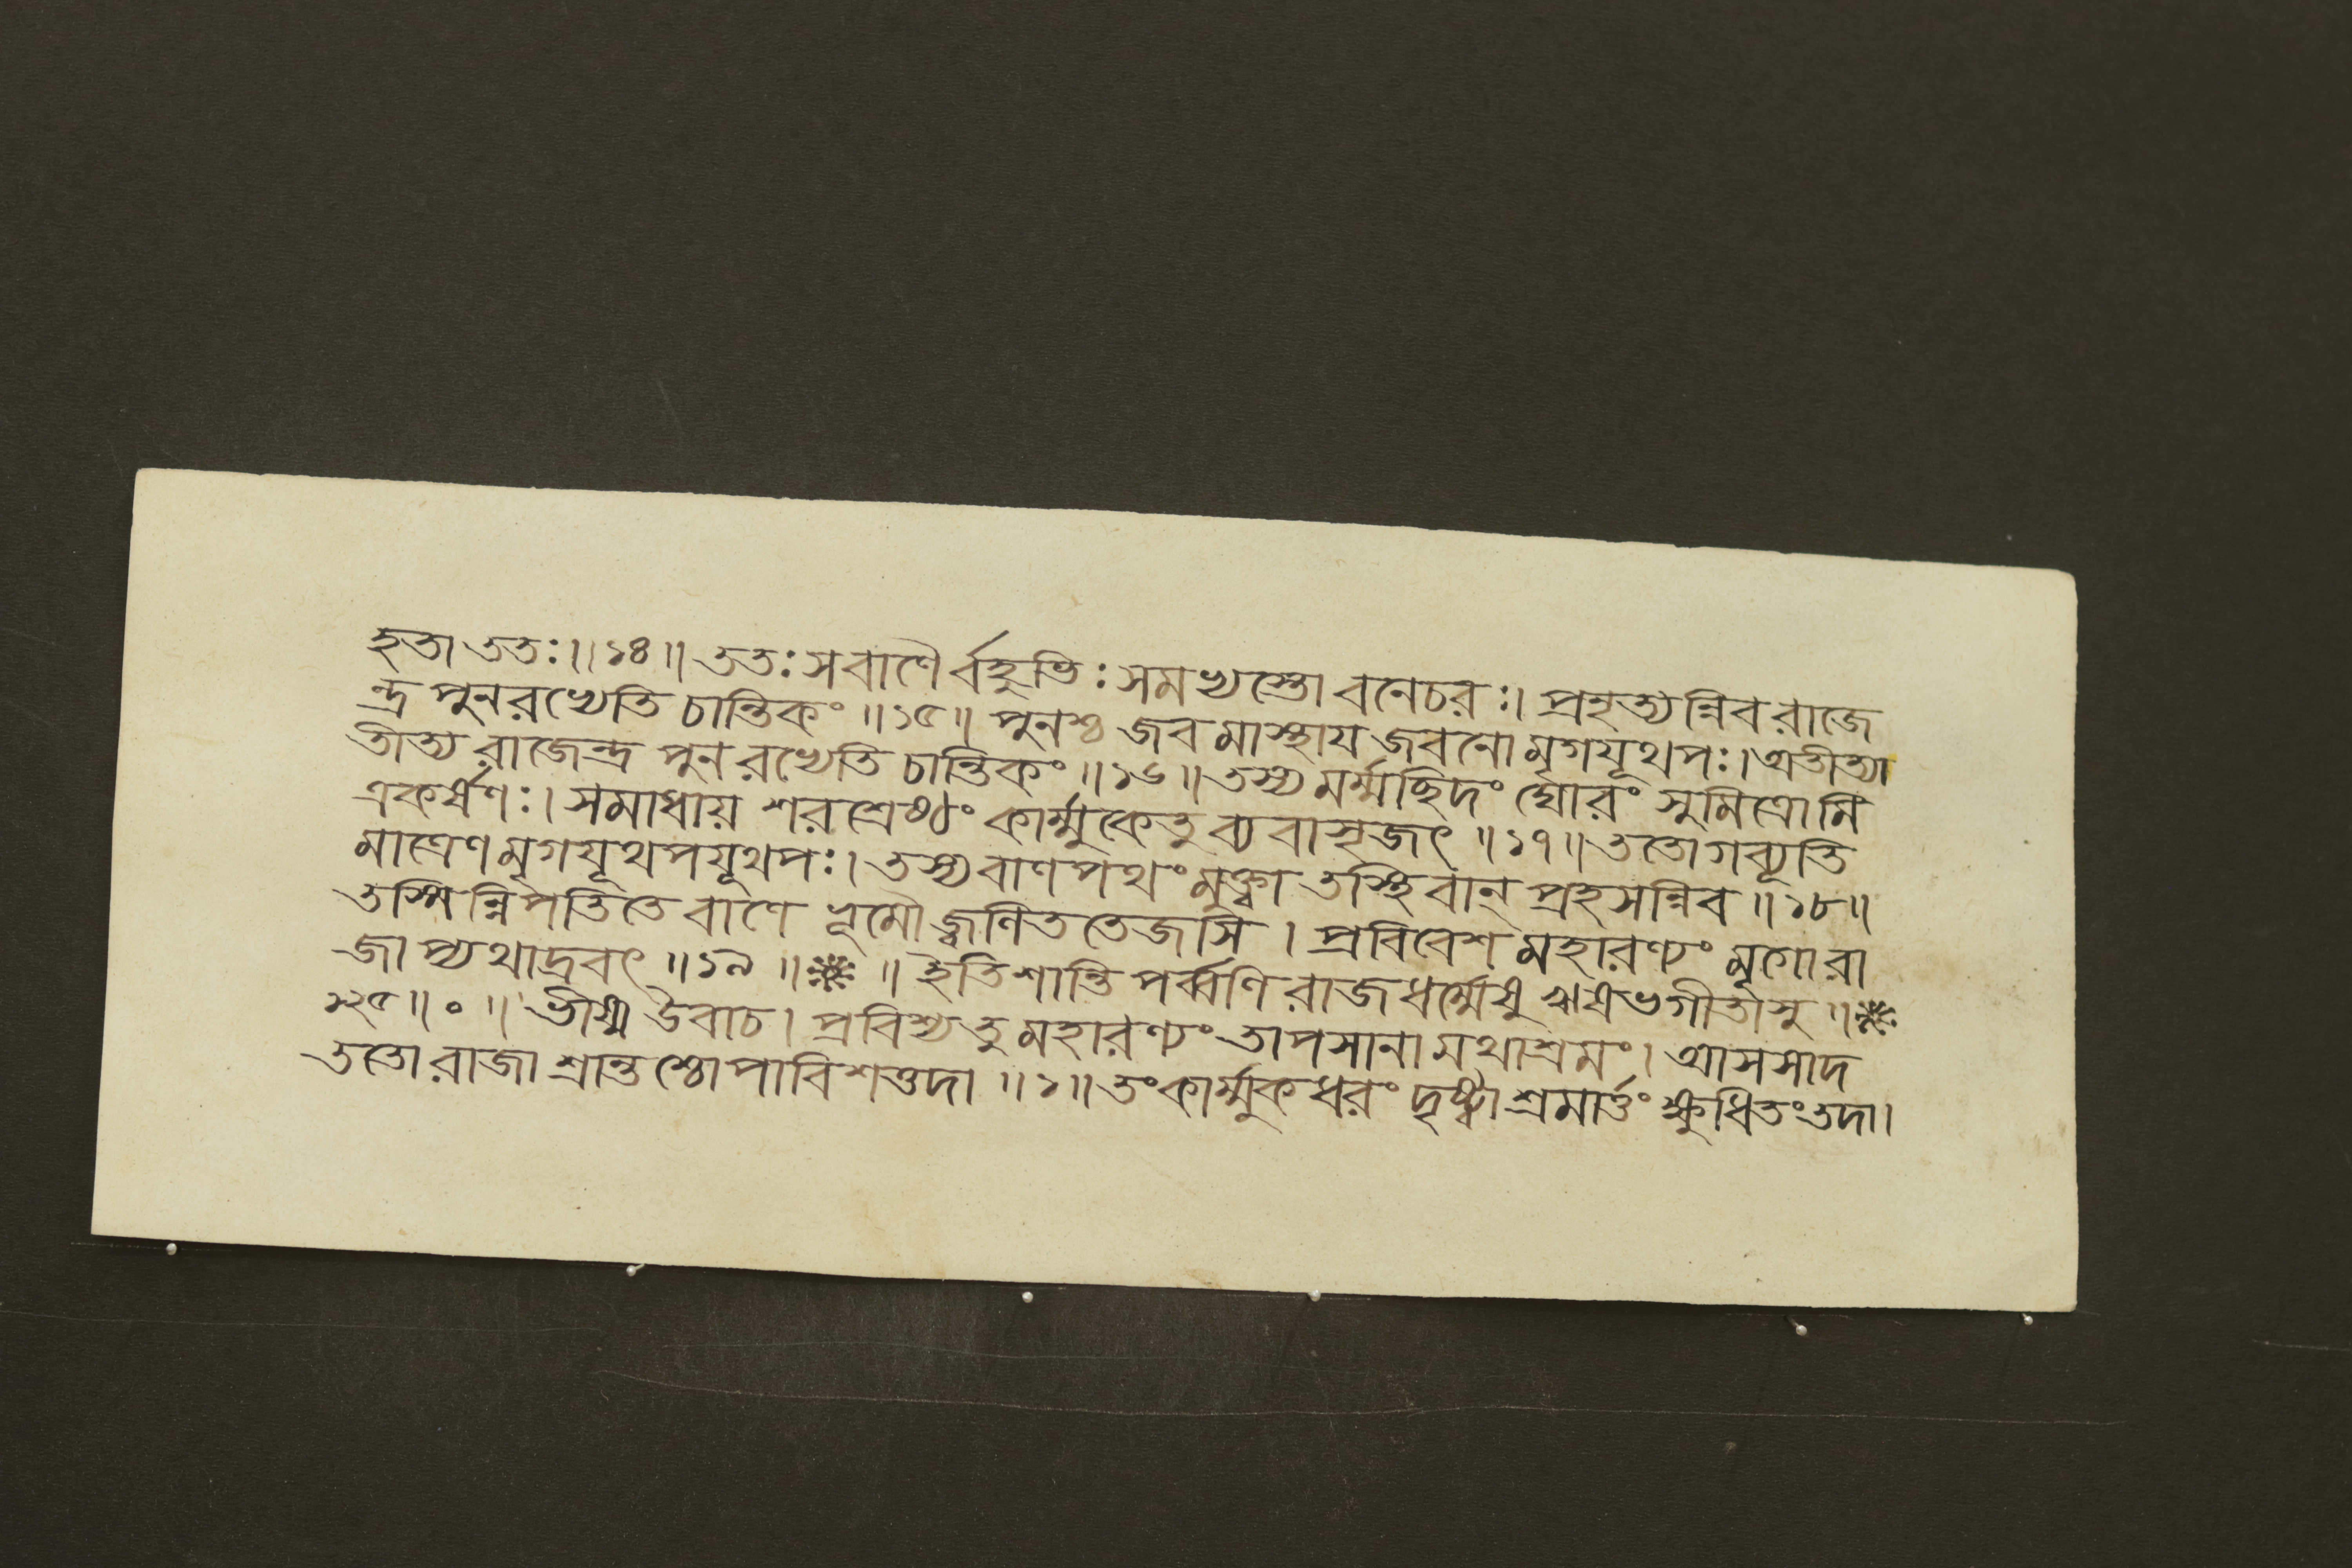 হতা ততঃ॥১৪॥ততঃসবাণৈর্বহুভিঃসমভ্যস্তোবনেচরঃ।প্রহৃত্যন্নিবরাজে
ন্দ্র পুনরভ্যেতি চান্তিকং॥১৫॥ পুনশ্চ জবমাস্থায জবনোমৃগযূথপঃ।অতীত্যা
তীত্য রাজেন্দ্র পুনরভ্যেতি চান্তিকং॥১৬॥তস্য মর্ম্মছিদং র্ঘোরং সুমিত্রোমি
ত্রকর্ষণঃ। সমাধায় শরশ্রেষ্ঠং কার্ম্মুকেতু ব্যবাসৃজৎ ॥১৭॥ততোগব্যূতি
মাত্রেণ মৃগযূথপযূথপঃ। তস্যবাণপথংমুক্ত্বা তস্থিবান্ প্রহসন্নিব॥১৮॥
তস্মিন্নিপতিতে বাণে ভূমৌ জ্বলিততেজসি। প্রবিবেশ মহারণ্যং মৃগোরা
জাপ্যথাদ্রবৎ॥১৯॥ ॥ ইতিশান্তিপর্ব্বণি রাজধর্ম্মেষু ঋষভগীতাসু॥
১২৫॥০॥ভীষ্ম উবাচ। প্রবিশ্যতুমহারণ্যং তাপসানামথাশ্রমং। আসসাদ
ততোরাজা শ্রান্তশ্চোপাবিশত্তদা॥১॥তংকার্ম্মুকধরং দৃষ্ট্বা শ্রমার্ত্তং ক্ষুধিতংতদা।